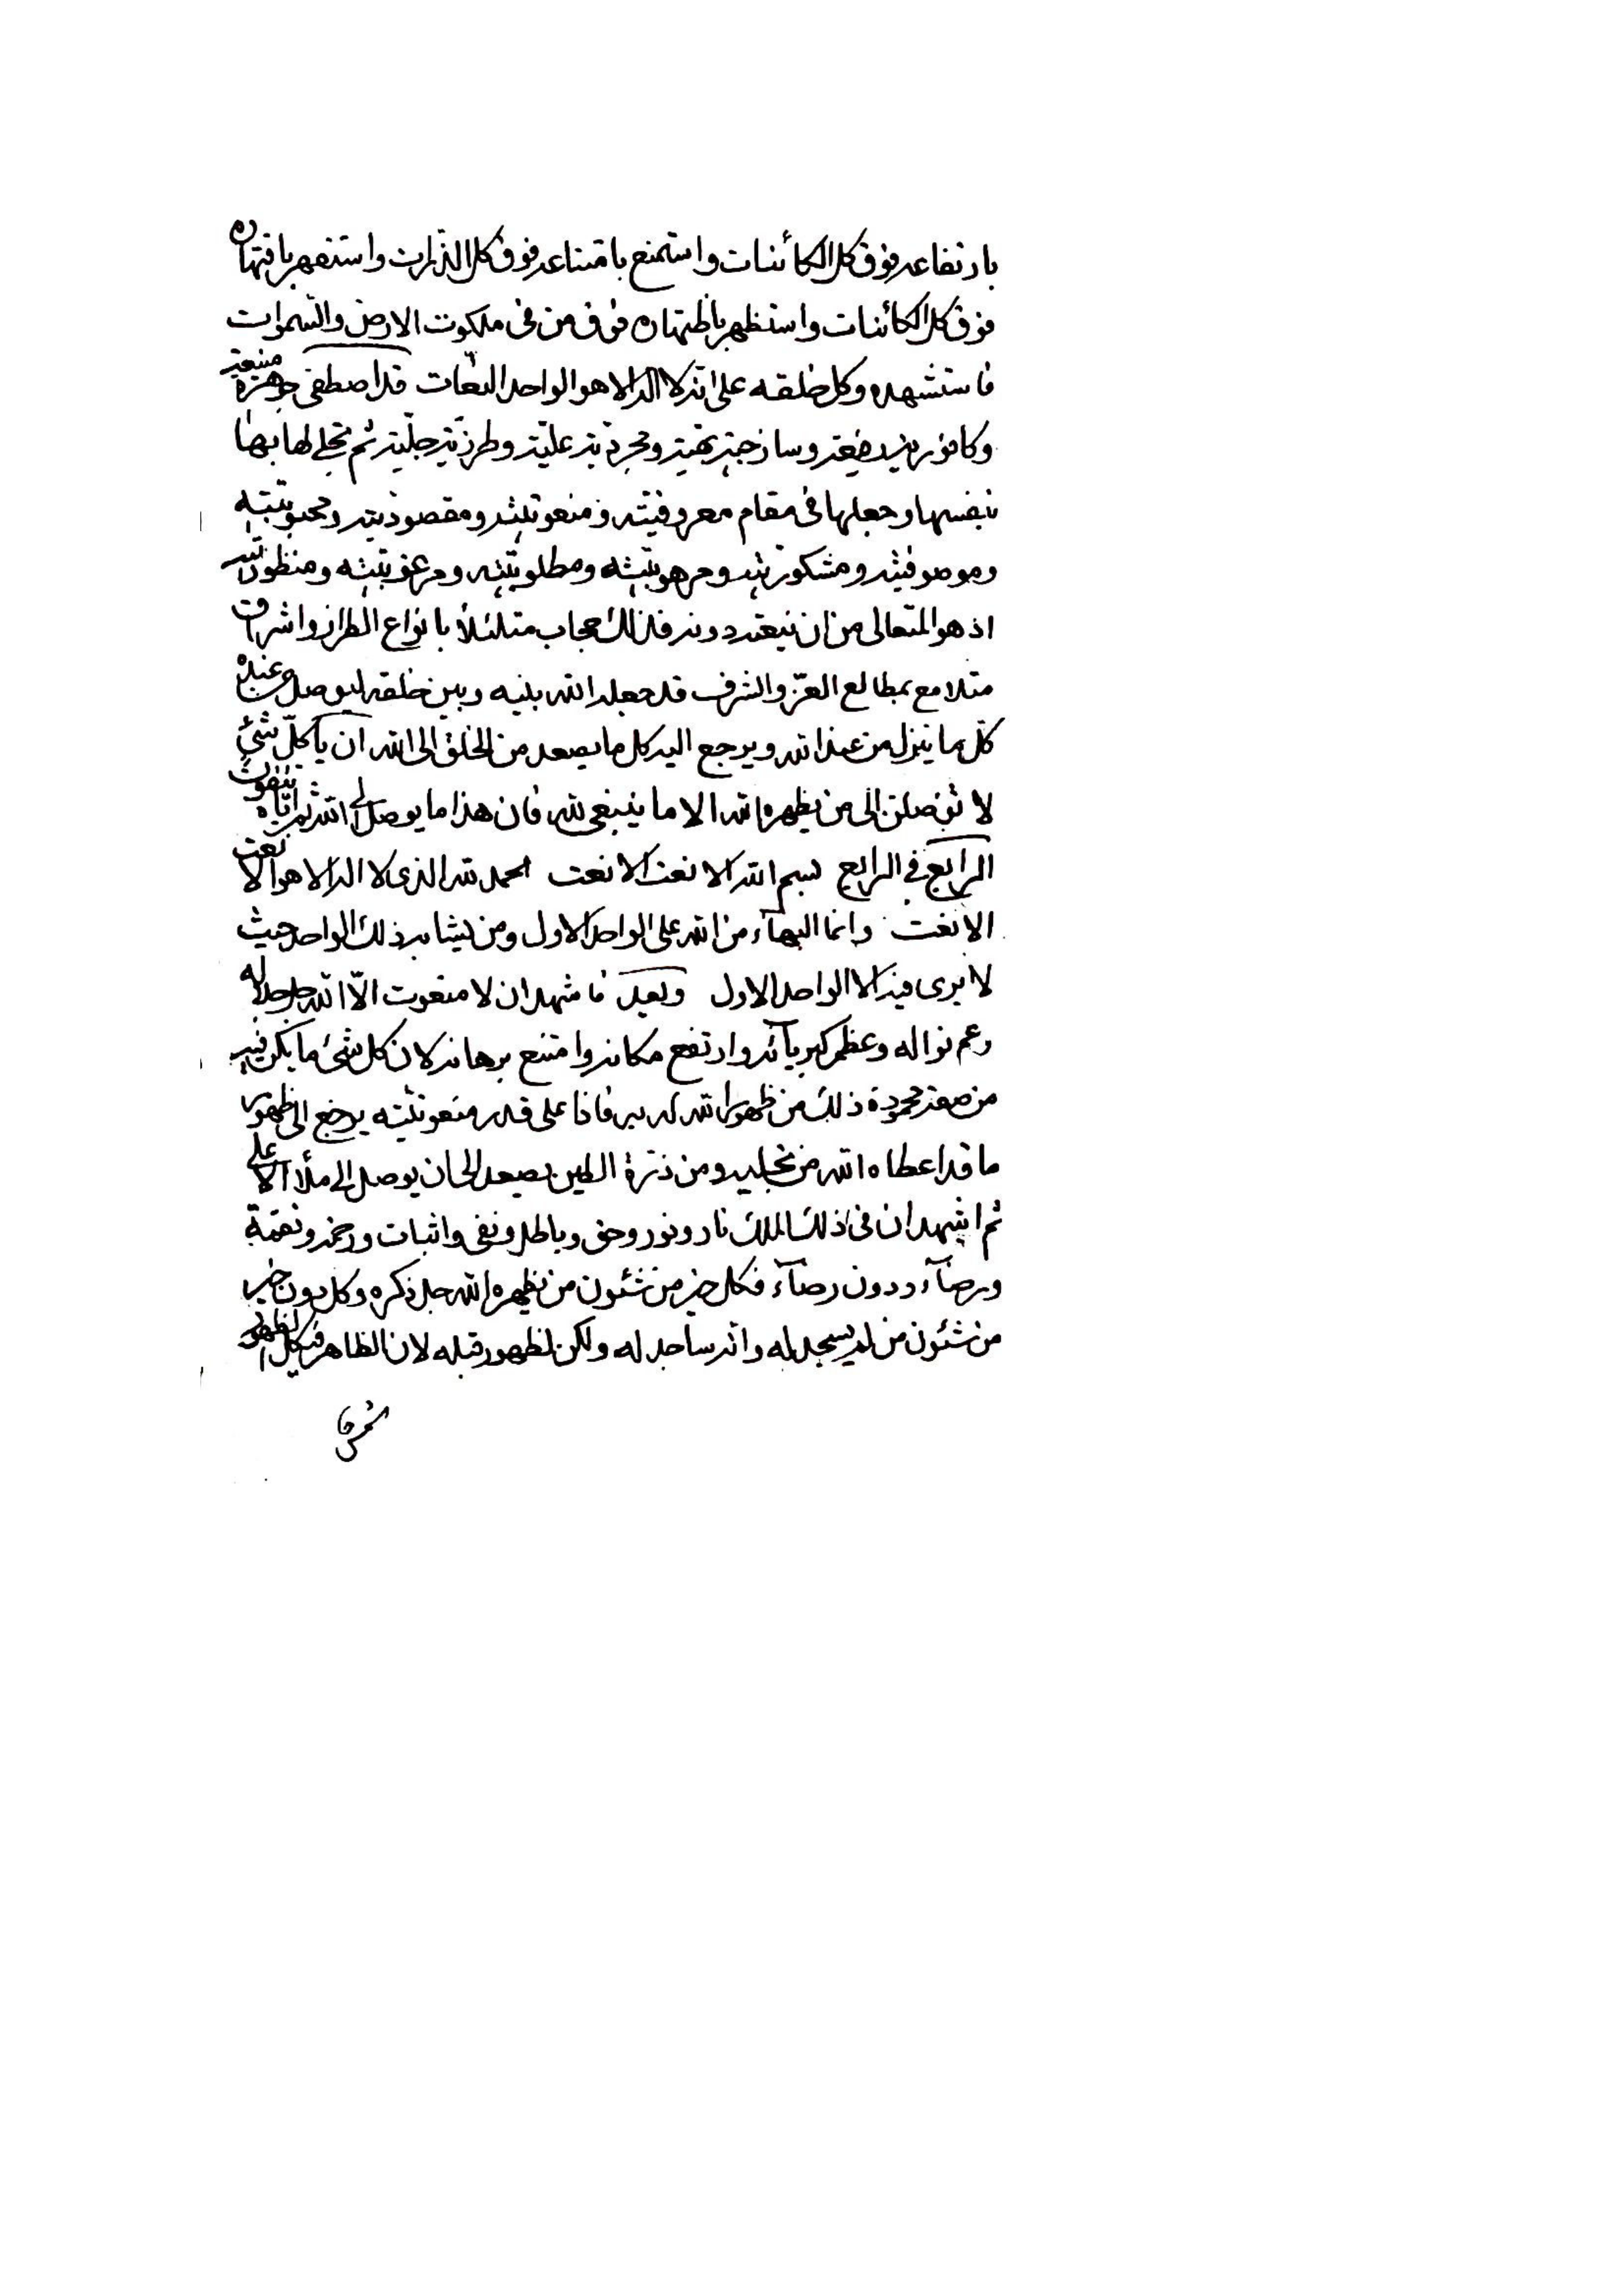 بارتفاعه فوق كل الكائنات واستمنع بامتناعه فوق كل الذرات واستقهر باقتهاره
فوق كل الكائنات واستظهر باظتهاره فوق من فى ملكوت الارض والسموات
فاستشهده وكل خلقه على انه لا اله الا هو الواحد النعات قد اصطفى جوهرة منيعة
وكافورية رفيعة وساذجية بهية ومجردية علية وطرزية جلية ثم تجلى لها بها
بنفسها وجعلها فى مقام معروفيته ومنعوتيته ومقصوديته ومحبوبيته
وموصوفيته ومشكوريته ومرهوبيته ومطلوبيته ومرغوبيته ومنظوريته
اذ هو المتعالى من ان ينعته دونه فلذلك حجاب متلئلأ بانواع الطراز واشراق
متلامع بمطالع العز والشرف قد جعله الله بينه وبين خلقه ليوصل من عنده
كل ما ينزل من عند الله ويرجع اليه كل ما يصعد من الخلق الى الله ان يا كلّ شئ
لا توصلن الى من يظهره الله الا ما ينبغى لله فان هذا ما يوصل الى الله ثم اياه تتقون
الرابع فى الرابع بسم الله الانعت الانعت الحمد لله الذى لا اله الا هو الانعت
الانعت وانما البهآء من الله على الواحد الاول ومن يشابه ذلك الواحد حيث
لا يرى فيه الا الواحد الاول وبعد فاشهد ان لا منعوت الّا الله جل جلاله
وعم نواله وعظم كبريآئه وارتفع مكانه وامتنع برهانه لان كل شئ ما يكن فيه
من صفة محمودة ذلك من ظهور الله له به فاذا على قدر منعوتيته يرجع الى ظهور
ما قد اعطاه الله من تجليه ومن ذرة الطين يصعد الى ان يوصل الى ملأ الاعلى
ثم اشهد ان فى ذلك الملك نار ونور وحق وباطل ونفى واثبات ورحمة ونقمة
ورضآء ودون رضآء فكل خير من شئون من يظهره الله جل ذكره وكل دون خير
من شئون من لم يسجد له وانه ساجد له ولكن لظهور قبله لان الظاهر فى كل الظهور